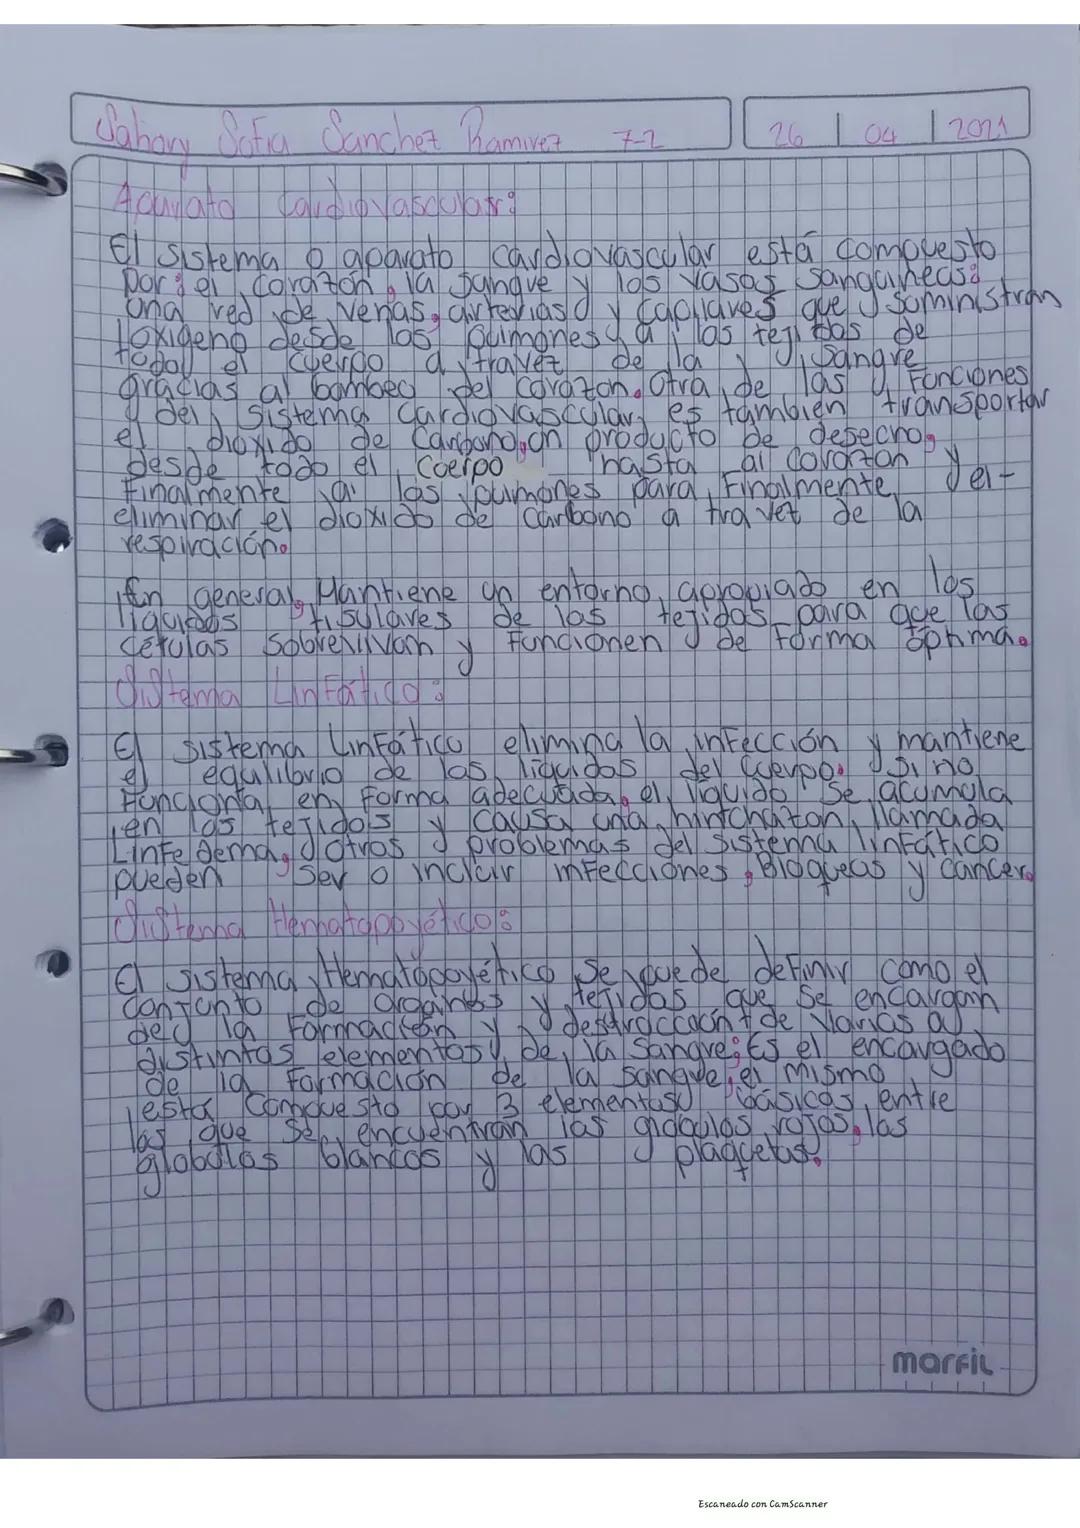 Sahory Sofia Sanchez Ramirez 7-2 26 04 2021
Aparato Cardiovascular:
El sistema o aparato cardiovascular está compuesto
por: el corazón, la sangre y los vasos sanguineos:
Una red de venas, arterias y capilares que suministran
oxigeno desde los pulmones a los tejidos de
todo el cuerpo a travez de la sangre
gracias al bombeo del corazon. Otra de las funciones
del sistema cardiovascular es tambien transportar
el dioxido de carbono, un producto de desecho,
desde todo el cuerpo hasta al corazon y
finalmente a los pulmones para finalmente el-
eliminar el dioxido de carbono a travez de la
respiración.
En general, Mantiene un entorno apropiado en los
liquidos tisulares de los tejidos para que las
células sobrevivan y funcionen de forma óptima.
Sistema Linfático:
El sistema Linfático elimina la infección y mantiene
el equilibrio de los liquidos del cuerpo. Si no
funciona en forma adecuada, el liquido se acumula
en los tejidos y causa una hinchazon, llamada
Linfedema, otros problemas del sistema linfático
pueden ser o incluir infecciones, Bloqueos y cancer.
Sistema Hematopoyético:
El sistema Hematopoyético se puede definir como el
conjunto de organos y tejidos que se encargan
de la formación y destrucción de varias o
distintos elementos de la sangre: Es el encargado
de la formación de la sangre, el mismo
está compuesto por 3 elementos básicos, entre
los que se encuentran los globulos rojos, los
globulos blancos y las plaquetas.
marfil
Escaneado con CamScanner